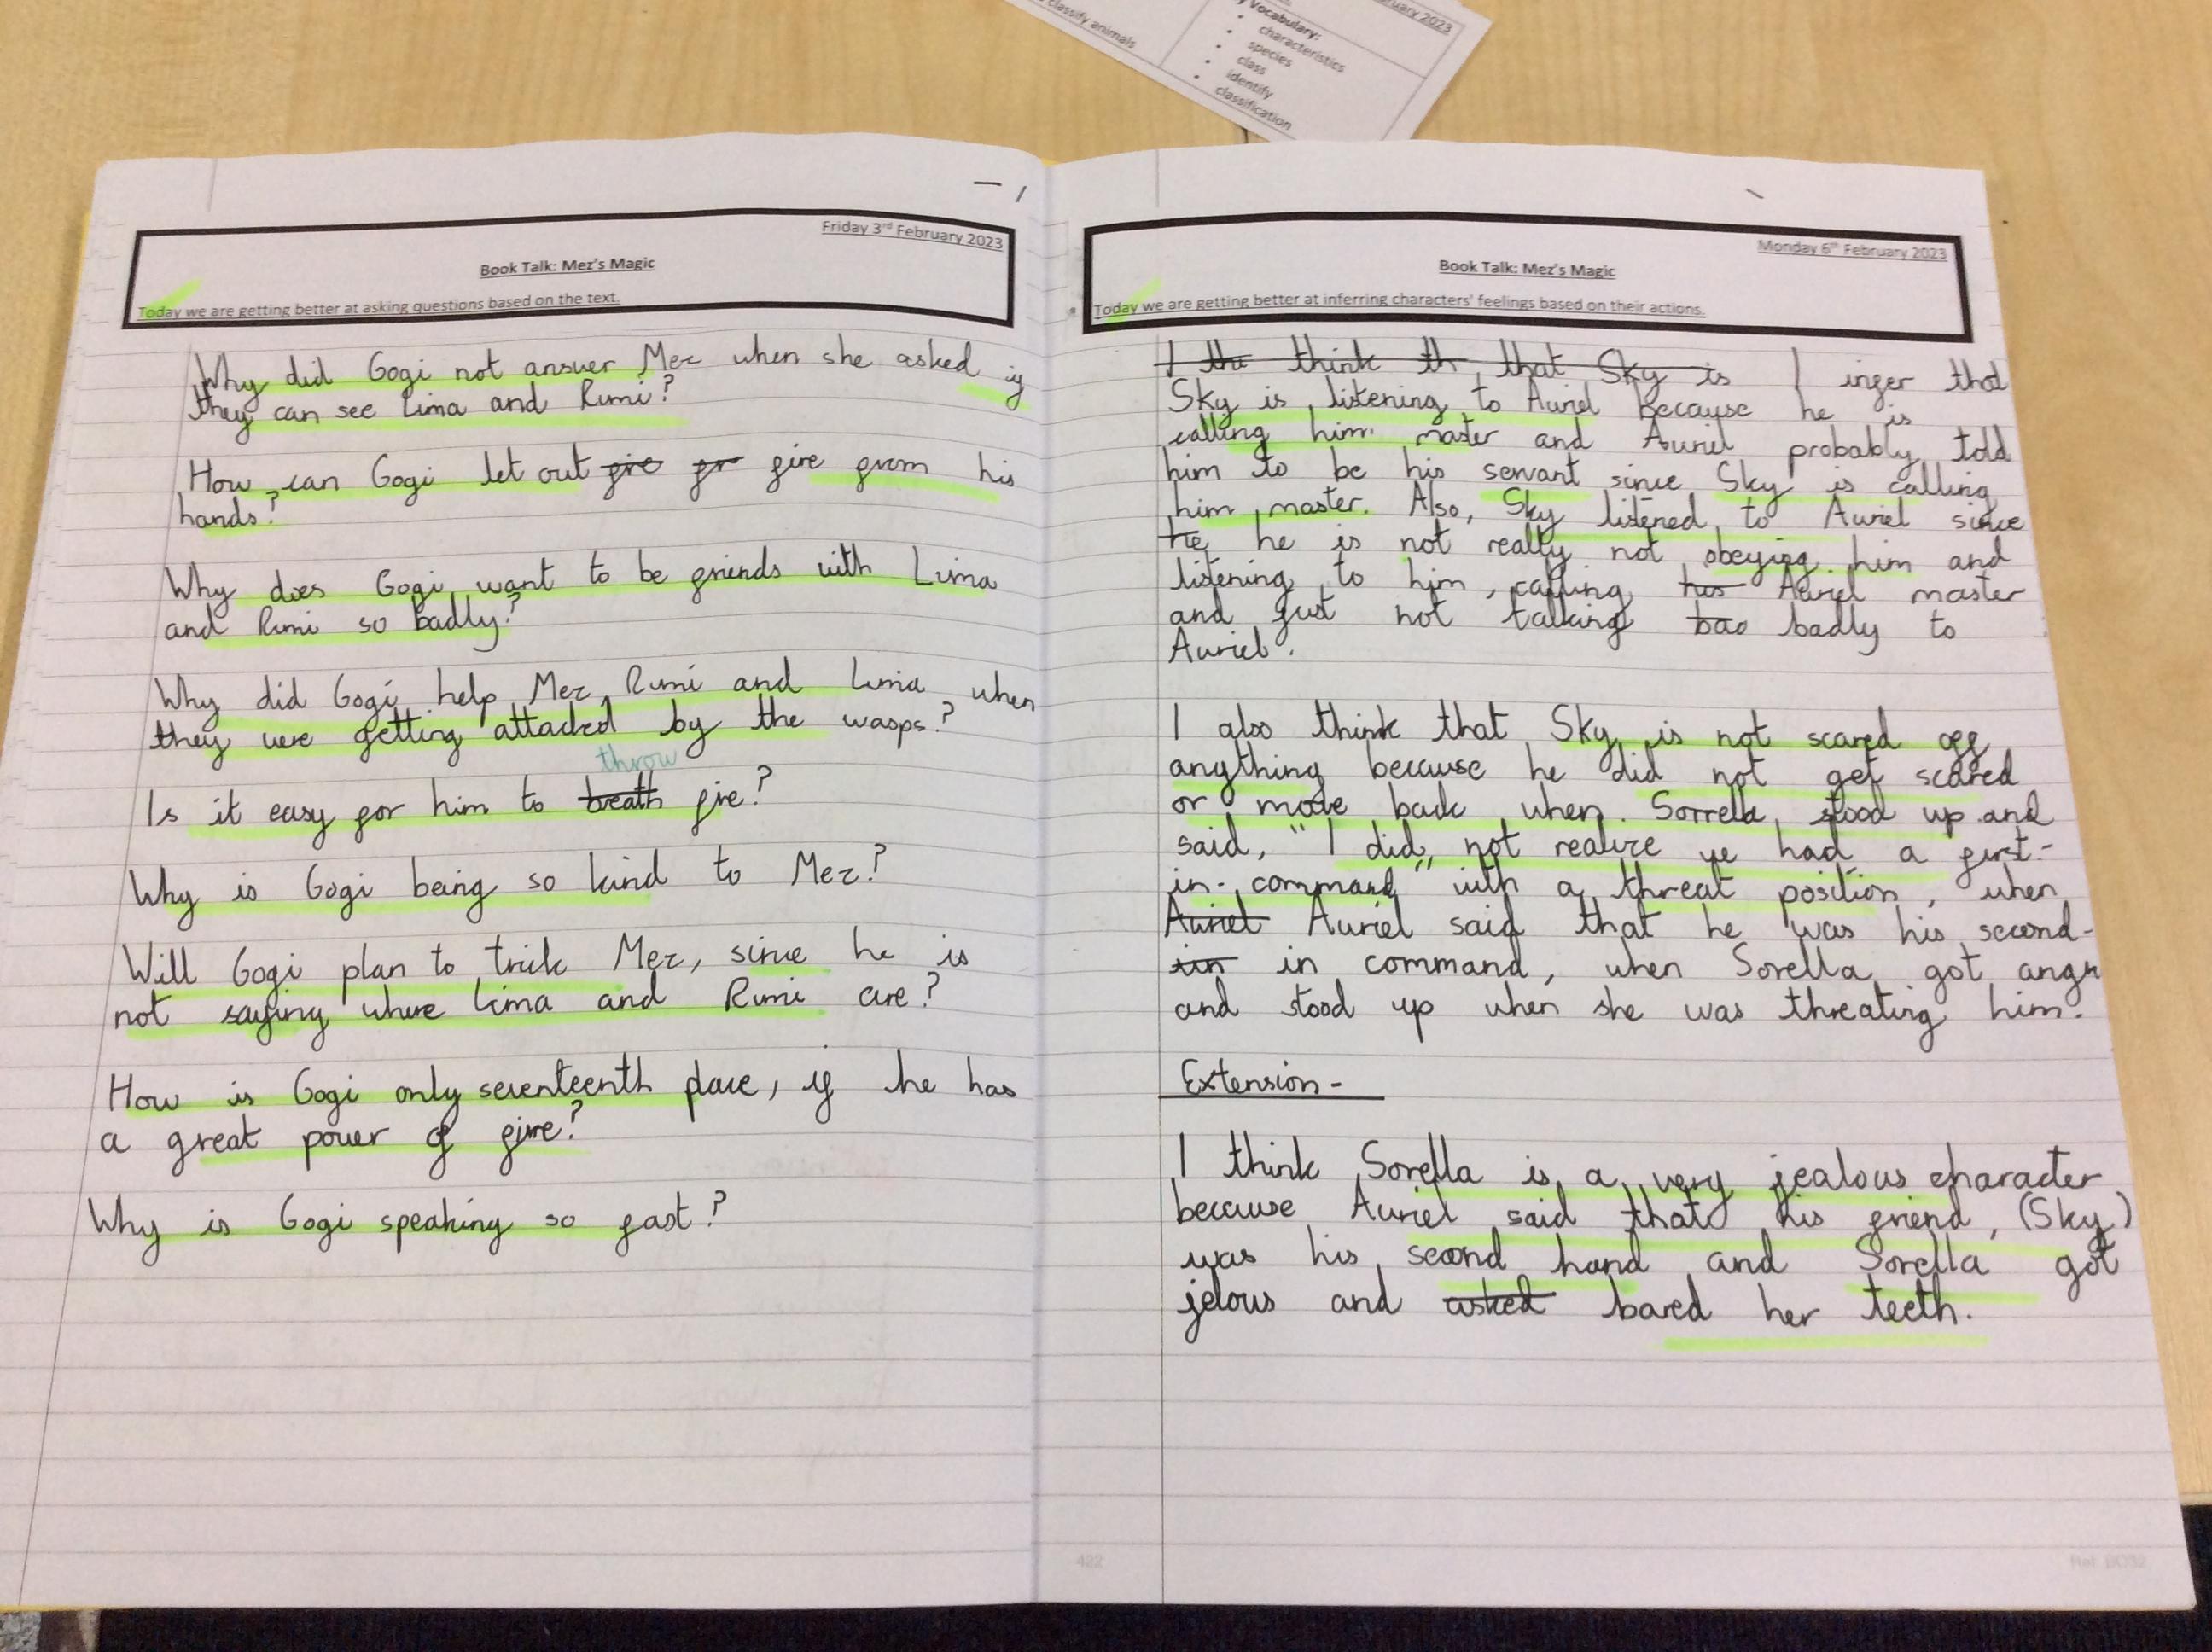 classify animals
Vocabulary:
characteristics
species
class
identify
classification
2023
Friday 3rd February 2023
Book Talk: Mez's Magic
Today we are getting better at asking questions based on the text.
Why did Gogi not answer Mez when she asked if
they can see Lima and Rumi?
How can Gogi let out fire from his
hands?
Why does Gogi want to be friends with Lima
and Rumi so badly?
Why did Gogi help Mez, Rumi and Lima when
they were getting attacked by the wasps?
throw
Is it easy for him to breath fire?
Why is Gogi being so kind to Mez?
Will Gogi plan to trick Mez, since he is
not saying where Lima and Rumi are?
How is Gogi only seventeenth place, if he has
a great power of fire?
Why is Gogi speaking so fast?
Monday 6th February 2023
Book Talk: Mez's Magic
Today we are getting better at inferring characters' feelings based on their actions.
I the think th that Sky is I infer that
Sky is listening to Auriel because he is
calling him master and Auriel probably told
him to be his servant since Sky is calling
him master. Also, Sky listened to Auriel since
he he is not really not obeying him and
listening to him, calling his Auriel master
and just not talking bad badly to
Auriel.
I also think that Sky is not scared off
anything because he did not get scared
or move back when Sorrella stood up and
said, "I did not realize ye had a first-
in-command" with a threat position, when
Auriel Auriel said that he was his second-
iin in command, when Sorella got angr
and stood up when she was threating him.
Extension-
I think Sorella is a very jealous character
because Auriel said that his friend, (Sky)
was his second hand and Sorella got
jelous and asked bared her teeth.
422
Ref. BD32